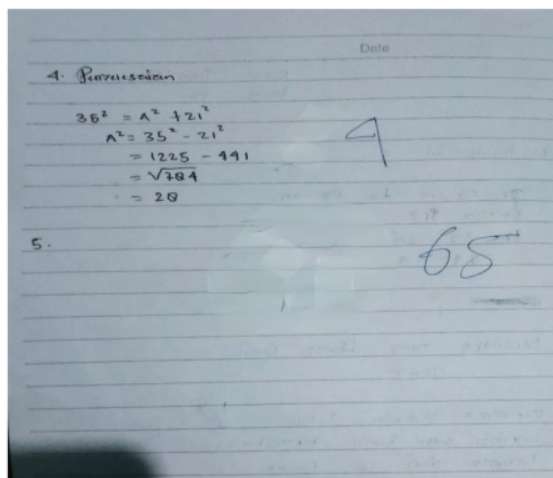 Date
4. Penyelesaian
35² = A² + 21²
A² = 35² - 21²
= 1225 - 441
= √784
= 28
9
5.
65